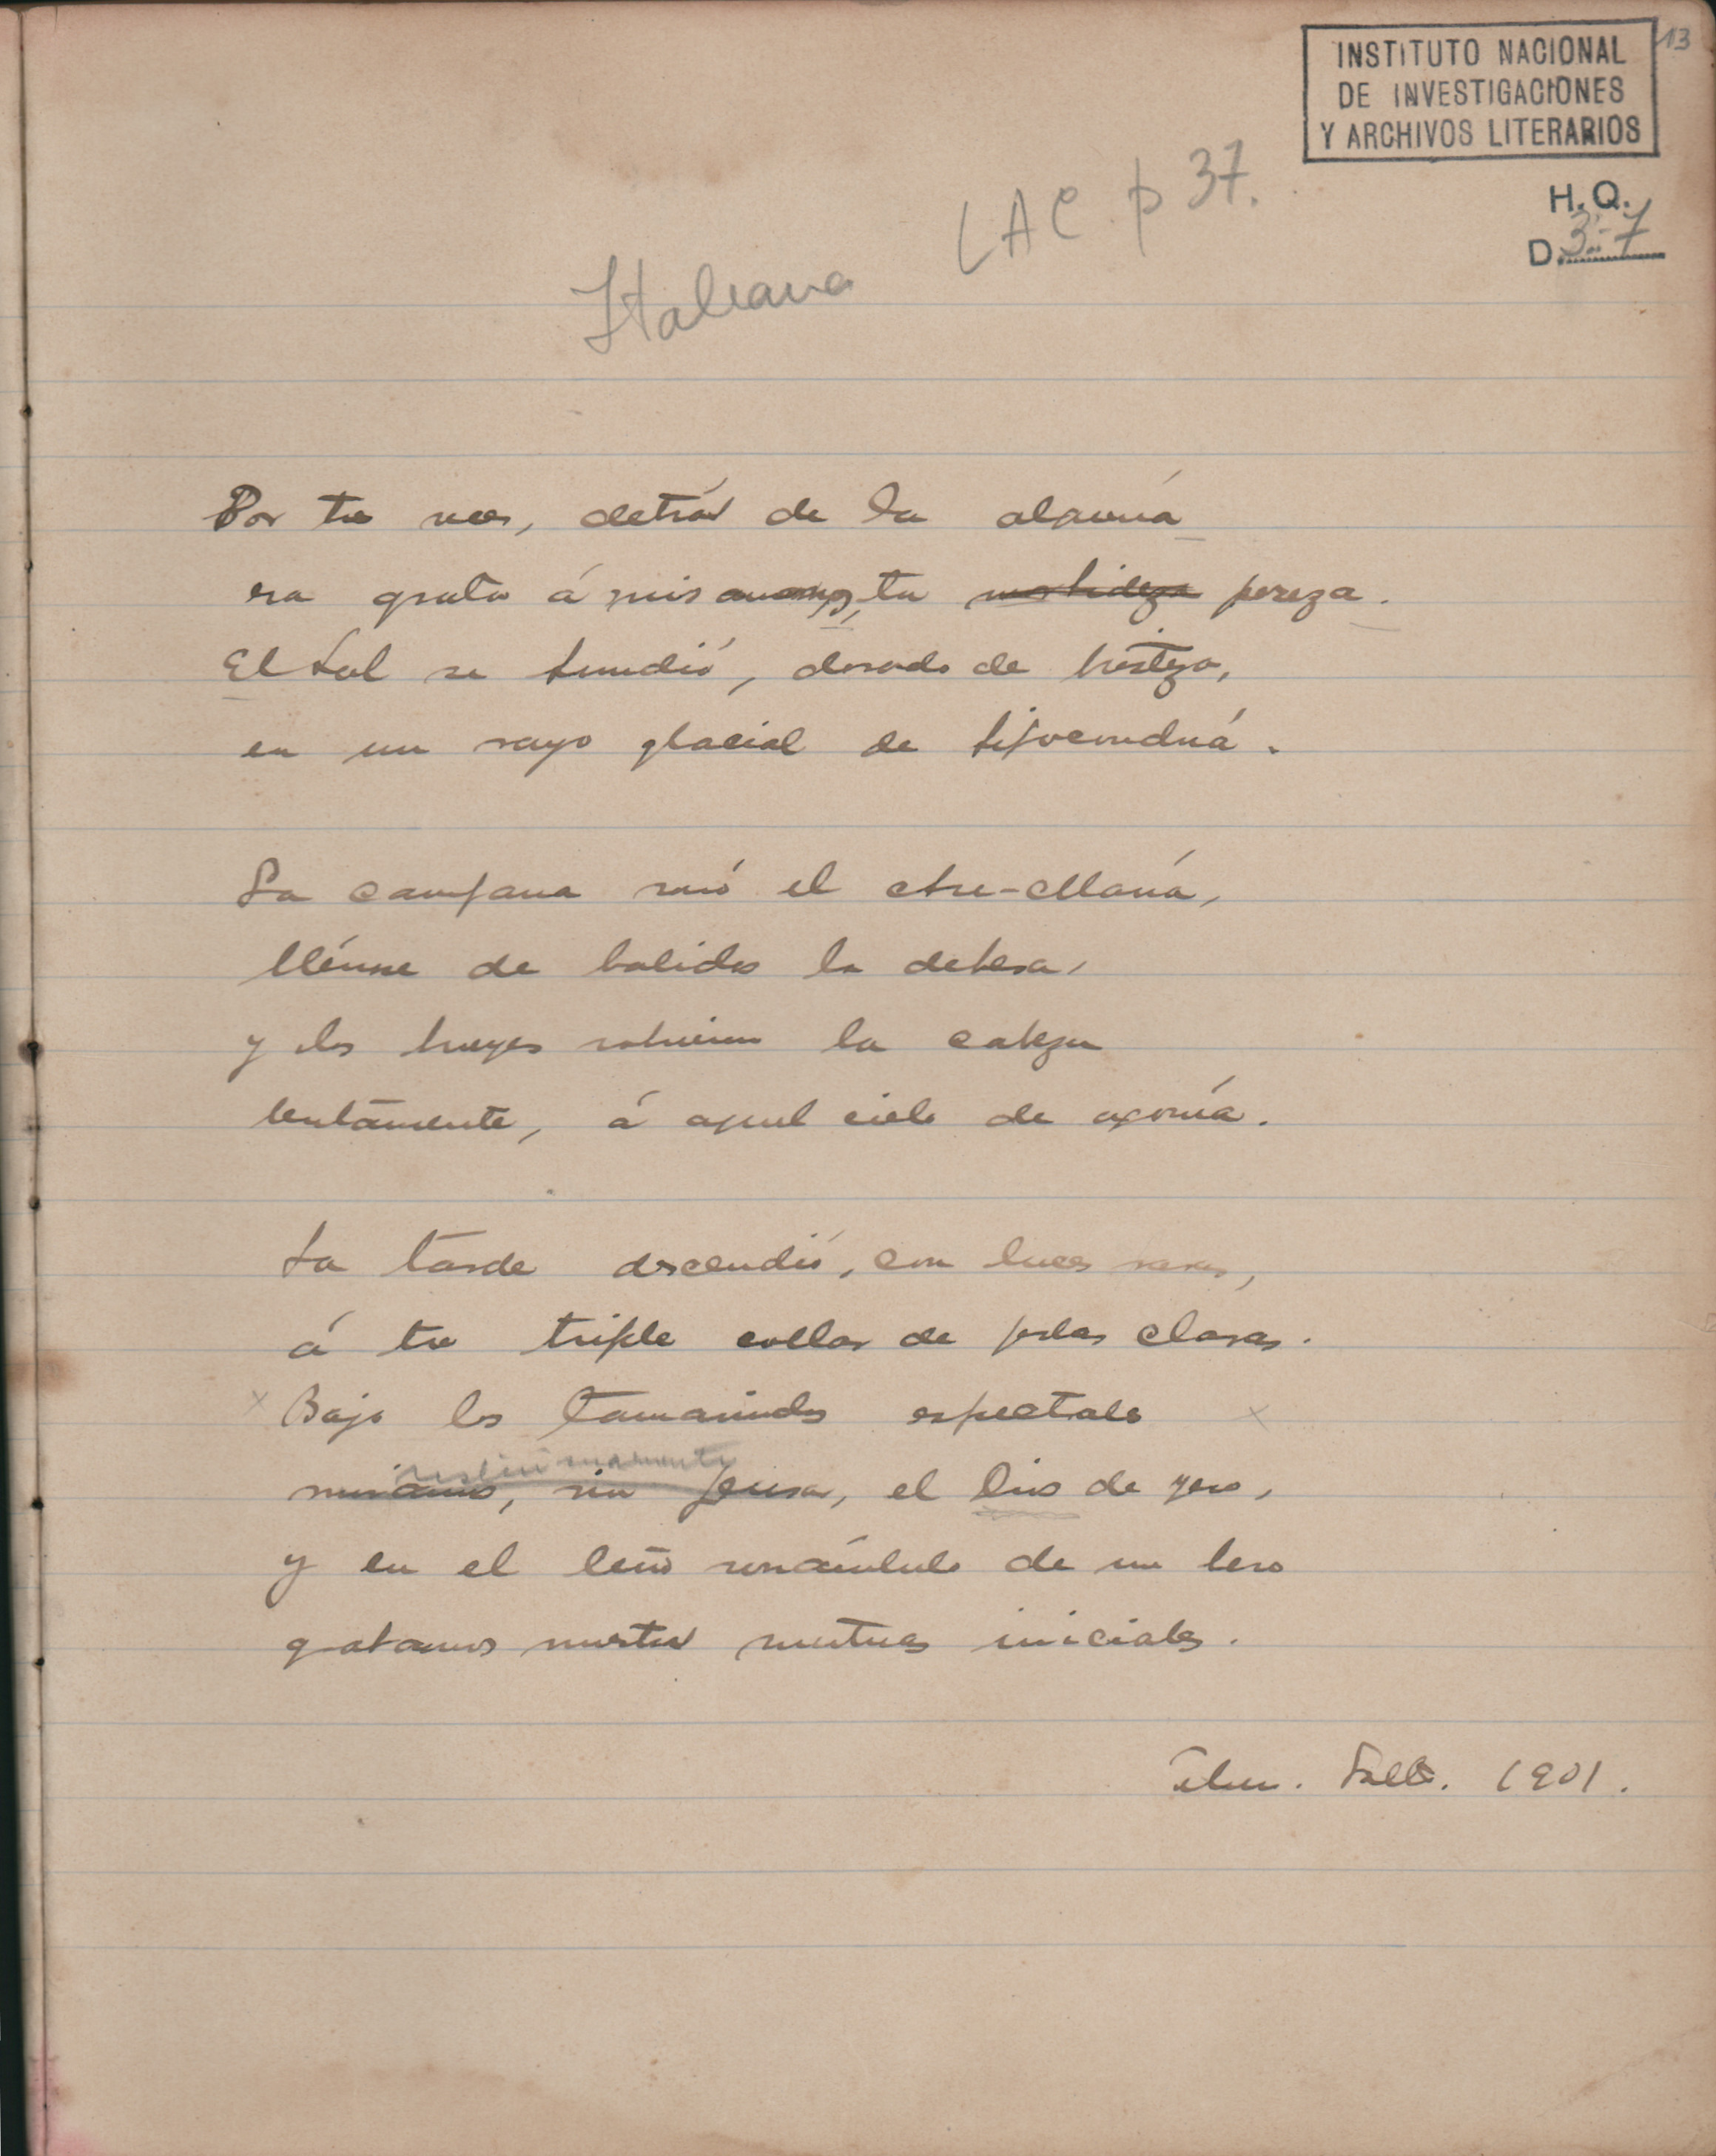 INSTITUTO NACIONAL
DE INVESTIGACIONES
Y ARCHIVOS LITERARIOS
13
H.Q.
D. 3:-7
LAC p 37.
Italiana
Por tu vez, detrás de la alquería
era grato á mis ansias, tu morbideza pereza.
El sol se hundió, dorado de tristeza,
en un rayo glacial de hipocondría.
La campana rezó el Ave-María,
llénose de balidos la dehesa,
y los bueyes volvieron la cabeza
lentamente, á aquel cielo de agonía.
La tarde descendió, con luces raras,
á tu triple collar de perlas claras.
x Bajo los tamarindos espectrales x
muramente
miramos, sin pensar, el Dios de yeso,
y en el leño sonámbulo de un beso
grabamos nuestras mutuas iniciales.
1901.